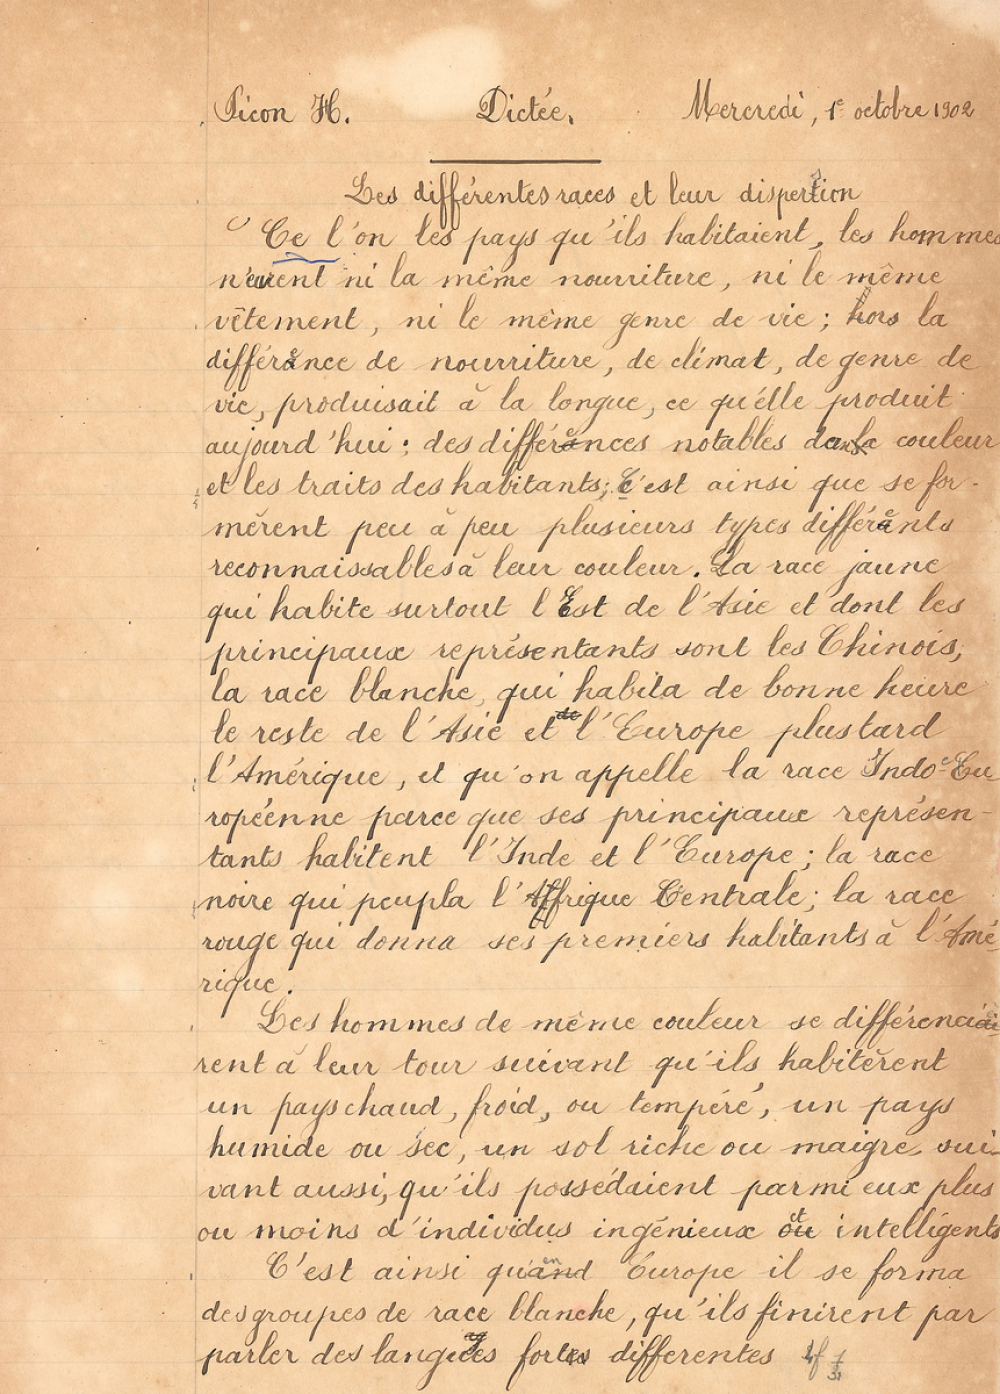 Picon H. Dictée. Mercredi, 1e octobre 1902
Les différentes races et leur dispertion
Ce l'on les pays qu'ils habitaient, les hommes
n'eurent ni la même nourriture, ni le même
vêtement, ni le même genre de vie ; hors la
différence de nourriture, de climat, de genre de
vie, produisait à la longue, ce qu'élle produit
aujourd'hui : des différences notables dans la couleur
et les traits des habitants; C'est ainsi que se for-
mèrent peu à peu plusieurs types différents
reconnaissables à leur couleur. La race jaune
qui habite surtout l'Est de l'Asie et dont les
principaux représentants sont les Chinois,
la race blanche, qui habita de bonne heure
le reste de l'Asie et de l'Europe plus tard
l'Amérique, et qu'on appelle la race Indo-Eu
ropéenne parce que ses principaux représen-
tants habitent l'Inde et l'Europe ; la race
noire qui peupla l'Affrique Centrale; la race
rouge qui donna ses premiers habitants à l'Amé-
rique.
Les hommes de même couleur se différenciai
rent à leur tour suivant qu'ils habitèrent
un pays chaud, froid, ou tempéré, un pays
humide ou sec, un sol riche ou maigre, sui-
vant aussi, qu'ils possédaient parmi eux plus
ou moins d'individus ingénieux et intelligents
C'est ainsi qu'en Europe il se forma
des groupes de race blanche, qu'ils finirent par
parler des langues fortes differentes